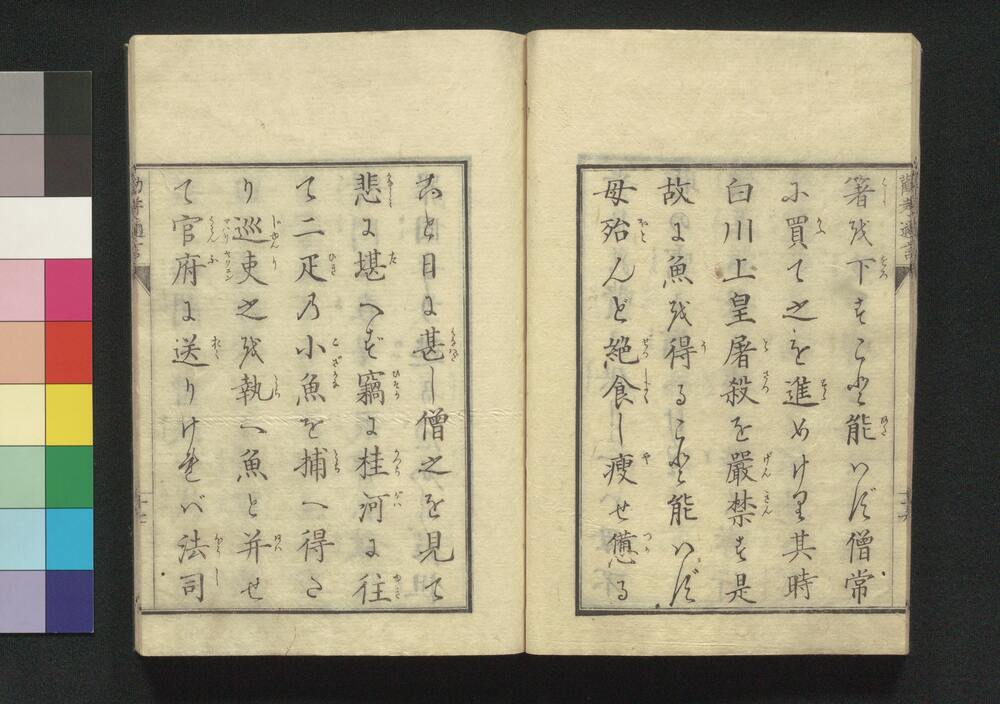 箸を下すこと能はず僧常
に買て之を進めけり其時
白川上皇屠殺を嚴禁す是
故に魚を得ること能はず
母殆んど絶食し瘦せ憊る
こと日に甚し僧之を見て
悲に堪へず竊に桂河に往
て二疋の小魚を捕へ得た
り巡吏之を執へ魚と并せ
て官府に送りければ法司